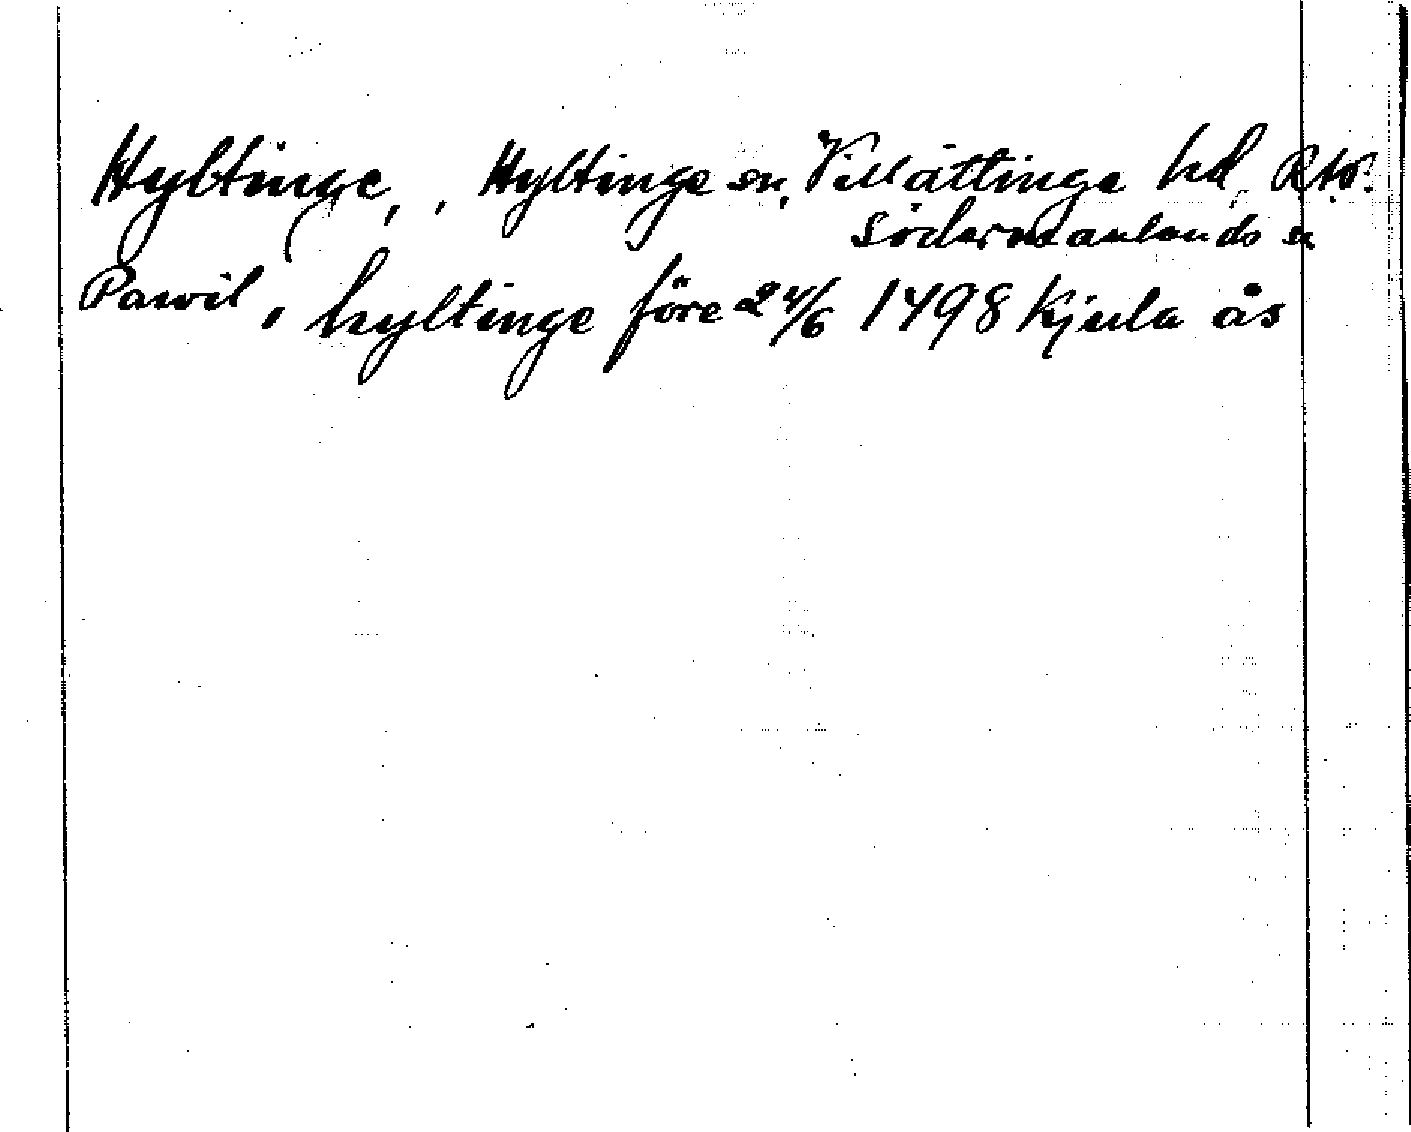 Hyltinge, , Hyltinge sn, Villåttinge hd,
Södermanlands
Pawil, hyltinge före 24/6 1498 Kjula ås